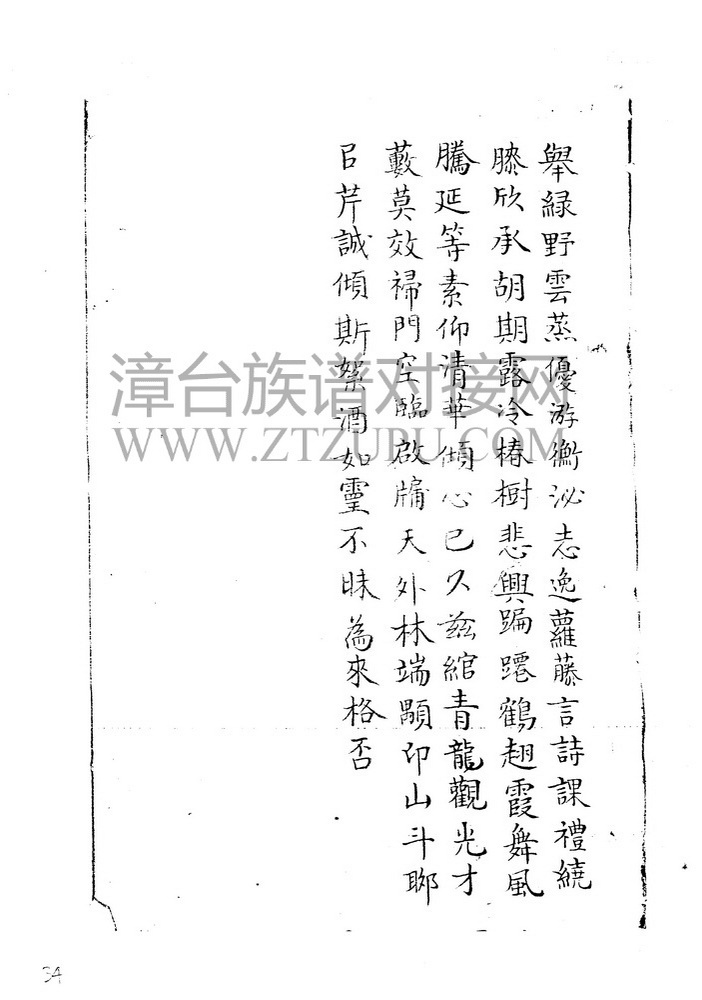 舉緑野雲蒸優游衡泌志逸蘿藤言詩課禮繞
膝欣承胡期露冷椿樹悲興蹁躚鶴翅霞舞風
騰延等素仰清華傾心已久茲綰青龍觀光才
藪莫效掃門空臨啟牖天外林端顒卬山斗聊
㠯芹誠傾斯絮酒如靈不昧為來格否
漳台族谱对接网
WWW.ZTZUPU.COM
34